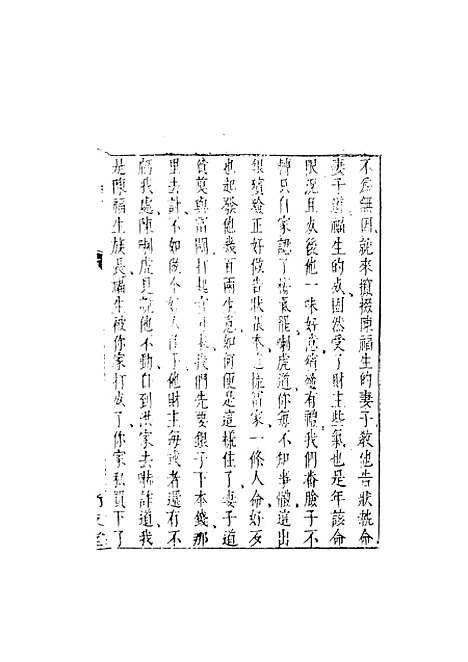 不爲無因就來攛掇陳福生的妻子教他告狀執命
妻子道福生的死固然受了財主些氣也是年該命
限況且死後他一味好意殯殮有禮我們番臉子不
轉只自家認了悔氣罷喇虎道你每不知事體這出
銀殯殮正好做告狀張本這樣富家一條人命好歹
也起發他幾百兩生意如何便是這樣住了妻子道
貧莫與富鬬打起官司來我們先要銀子下本錢那
里去討不如做个好人住了他財主每或者還有不
虧我處陳喇虎見說他不動自到洪家去嚇詐道我
是陳福生族長福生被你家打死了你家私買下了